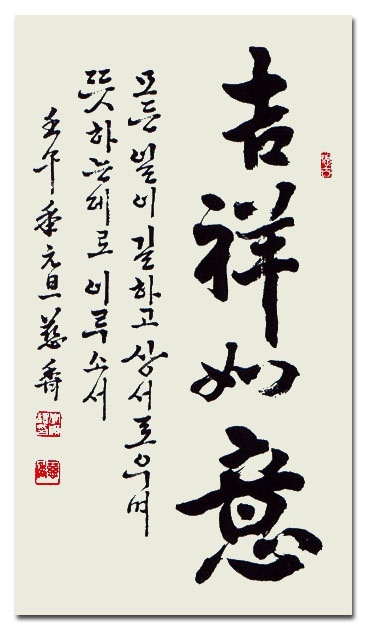 吉祥如意
모든 일이 길하고 상서로우며
뜻하는데로 이루소서
壬午秊元旦慈